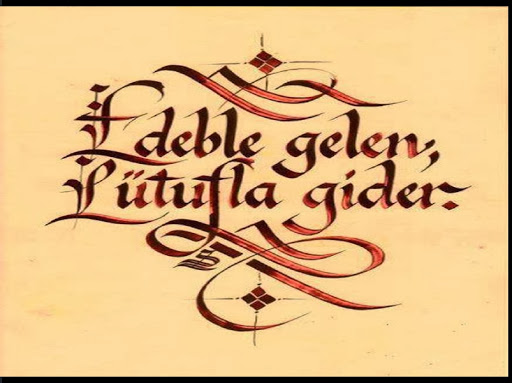 Edeble gelen,
Lütufla gider.